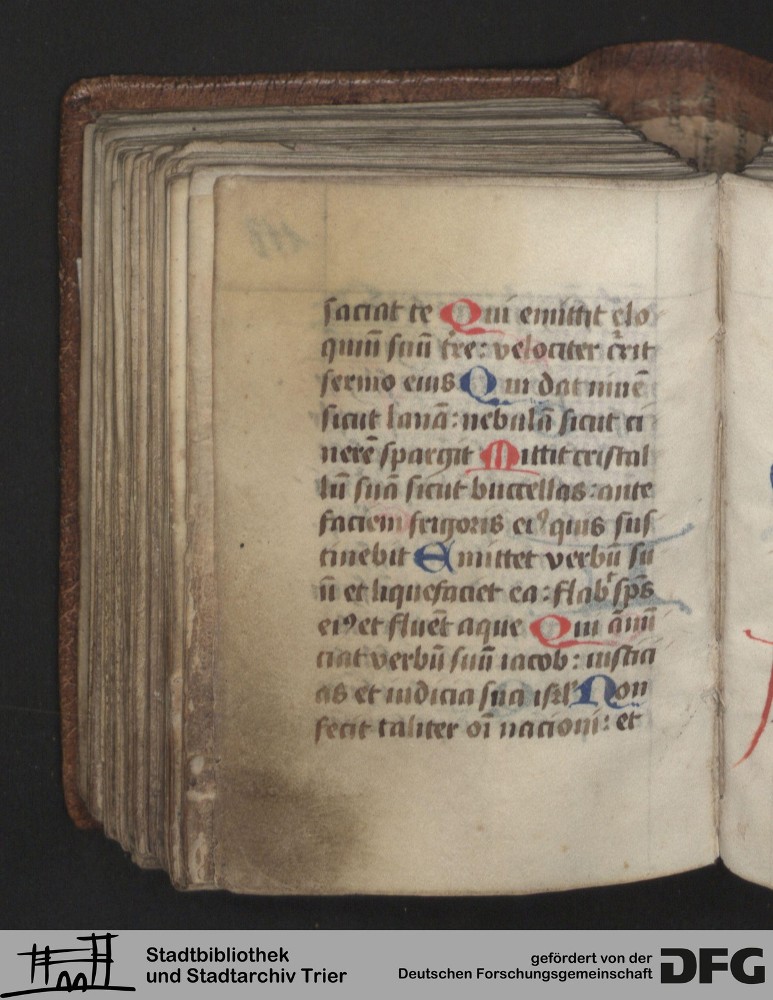 saciat te Qui emittit elo
quiū suū tr̄e: velociter c̄rit
sermo eius Qui dat niuē
sicut lanā: nebulā sicut ci
nerē spargit Mittit cristal
lū suā sicut buccellas: ante
faciem frigoris eiꝰ quis sus
tinebit Emittet verbū su
ū et liquefaciet ea: flabͭ sp̄s
eiꝰ et fluēt aque Qui ānū
ciat verbū suū iacob: iustici
as et iudicia sua isrl̄ Non
fecit taliter oī nacioni: et
Stadtbibliothek
und Stadtarchiv Trier
gefördert von der
Deutschen Forschungsgemeinschaft
DFG